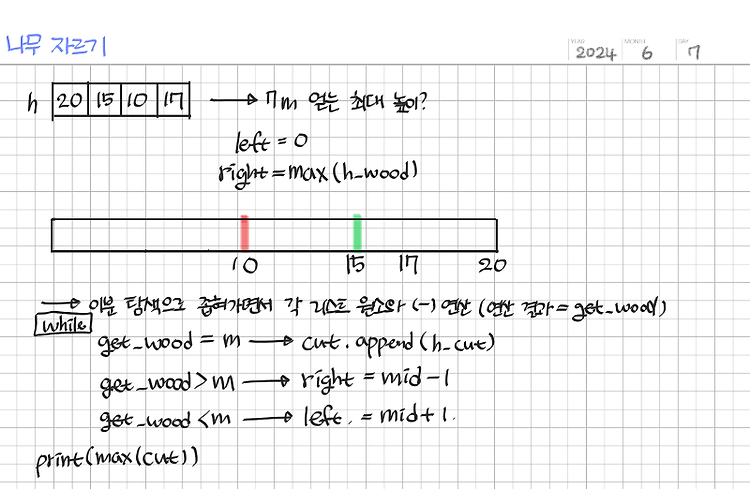 나무 자르기
YEAR MONTH DAY
2024 6 7
h 20 15 10 17 → 7m 얻는 최대 높이?
left = 0
right = max(h_wood)
10 15 17 20
→ 이분 탐색으로 좁혀가면서 각 리스트 원소와 (-) 연산 (연산 결과 = get_wood)
while
get_wood = m → cut.append(h_cut)
get_wood > m → right = mid-1
get_wood < m → left. = mid+1.
print(max(cut))